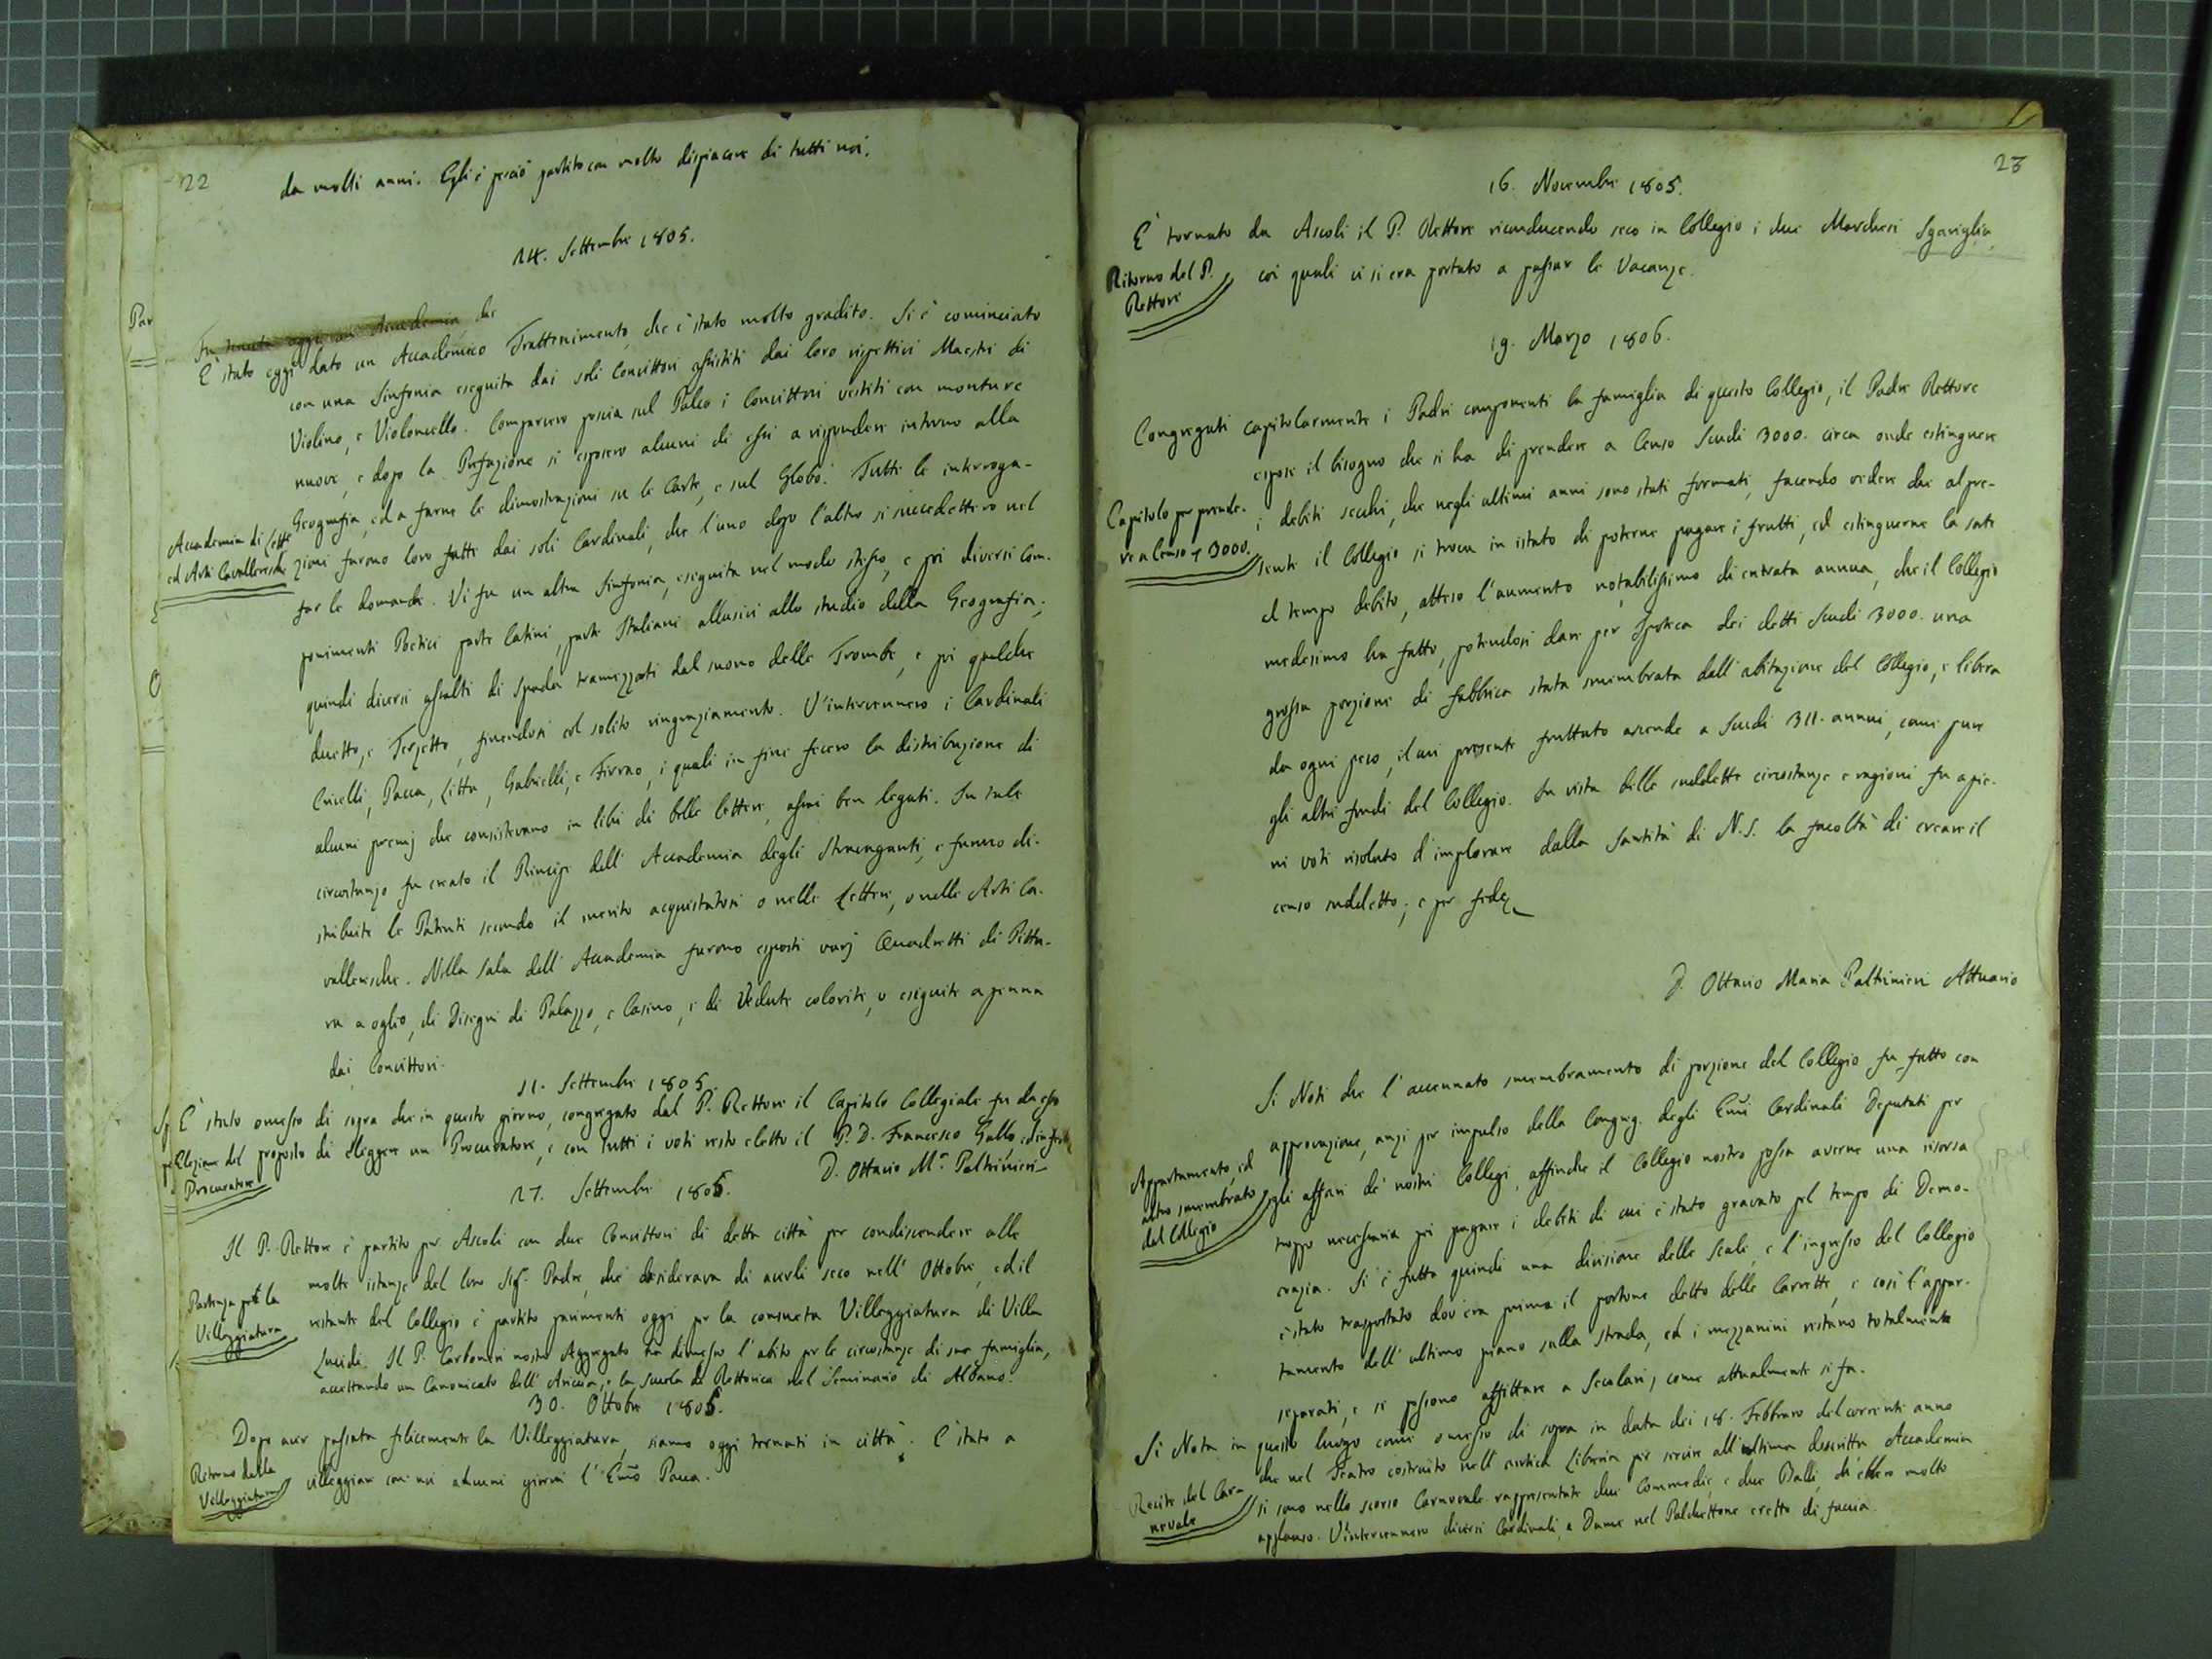 22
da molti anni. Egli è perciò partito con molto dispiacere di tutti noi.
14. Settembre 1805.
Fu tenuta oggi un Accademia che
E' stato oggi dato un Accademico Trattenimento, che è stato molto gradito. Si è cominciato
con una Sinfonia eseguita dai soli Convittori assistiti dai loro rispettivi Maestri di
Violino, e Violoncello. Comparvero poscia sul Palco i Convittori vestiti con monture
nuove, e dopo la Prefazione si esposero alcuni di essi a rispondere intorno alla
Geografia, ed a farne le dimostrazioni su le Carte, e sul Globo. Tutte le interroga-
Accademia di Lett.
ed Arti Cavalleresche
zioni furono loro fatte dai soli Cardinali, che l'uno dopo l'altro si succedettero nel
far le domande. Vi fu un altra Sinfonia, eseguita nel modo stesso, e poi diversi Com-
ponimenti Poetici parte Latini, parte Italiani allusivi allo studio della Geografia;
quindi diversi assalti di Spada tramezzati dal suono delle Trombe, e poi qualche
duetto, e Terzetto, finendosi col solito ringraziamento. V'intervennero i Cardinali
Crivelli, Pacca, Litta, Gabrielli, e Firrao, i quali in fine fecero la distribuzione di
alcuni premj che consistevano in libri di belle lettere, assai ben legati. In tale
circostanza fu creato il Principe dell' Accademia degli Stravaganti, e furono di-
stribuite le Patenti secondo il merito acquistatosi o nelle Lettere, o nelle Arti Ca-
valleresche. Nella Sala dell' Accademia furono esposti varj Quadretti di Pittu-
ra a oglio, di Disegni di Palazzo, e Casino, e di Vedute colorite, o eseguite a penna
dai Convittori.
11. Settembre 1805.
E' stato omesso di sopra che in questo giorno, congregato dal P. Rettore il Capitolo Collegiale fu da esso
Elezione del
Procuratore
proposto di eleggere un Procuratore, e con tutti i voti restò eletto il P. D. Francesco Gallo, ed in fede
D. Ottavio M.ª Paltrinieri
27. Settembre 1805.
Il P. Rettore è partito per Ascoli con due Convittori di detta città per condiscendere alle
molte istanze del loro Sig. Padre, che desiderava di averli seco nell' Ottobre, ed il
Partenza per la
Villeggiatura
restante del Collegio è partito parimenti oggi per la consueta Villeggiatura di Villa
Lucidi. Il P. Carboneri nostro Aggregato ha dimesso l'abito per le circostanze di sua famiglia,
accettando un Canonicato dell' Ariccia, e la Scuola di Rettorica nel Seminario di Albano.
30. Ottobre 1805.
Dopo aver passata felicemente la Villeggiatura, siamo oggi tornati in città. E' stato a
Ritorno dalla
Villeggiatura
villeggiare con noi alcuni giorni l'Emo Pacca.
23
16. Novembre 1805.
E' tornato da Ascoli il P. Rettore riconducendo seco in Collegio i due Marchesi Sgariglia,
Ritorno del P.
Rettore
coi quali vi si era portato a passar le Vacanze.
19. Marzo 1806.
Congregati capitolarmente i Padri componenti la famiglia di questo Collegio, il Padre Rettore
espose il bisogno che si ha di prendere a Censo Scudi 3000. circa onde estinguere
Capitolo per prende-
re a Censo 3000.
i debiti secchi, che negli ultimi anni sono stati formati, facendo vedere che al pre-
sente il Collegio si trova in istato di poterne pagare i frutti, ed estinguerne la sorte
al tempo debito, atteso l'aumento notabilissimo di entrata annua, che il Collegio
medesimo ha fatto, potendosi dare per Ipoteca dei detti Scudi 3000. una
grossa porzione di fabbrica stata smembrata dall'abitazione del Collegio, e libera
da ogni peso, il cui presente fruttato ascende a Scudi 311. annui, come pure
gli altri fondi del Collegio. In vista delle suddette circostanze e ragioni fu a pie-
ni voti risoluto d'implorare dalla Santità di N.S. la facoltà di creare il
censo suddetto; e per fede
D. Ottavio Maria Paltrinieri Attuario
Si Noti che l'accennato smembramento di porzione del Collegio fu fatto con
approvazione, anzi per impulso della Congreg. degli Emi Cardinali Deputati per
Appartamento, ed
altro smembrato
dal Collegio
gli affari de' nostri Collegi, affinchè il Collegio nostro possa averne una risorsa
troppo necessaria per pagare i debiti di cui è stato gravato pel tempo di Demo-
crazia. Si è fatta quindi una divisione delle Scale, e l'ingresso del Collegio
è stato trasportato dov'era prima il portone detto delle Carrette, e così l'appar-
tamento dell'ultimo piano sulla strada, ed i mezzanini restano totalmente
separati, e si possono affittare a Secolari, come attualmente si fa.
Si Nota in questo luogo come omesso di sopra in data dei 18. Febbraro del corrente anno
che nel Teatro costruito nell'antica Libreria per servire all'ultima descritta Accademia
Recite del Car-
nevale
si sono nello scorso Carnovale rappresentate due Commedie, e due Balli, ch'ebbero molto
applauso. V'intervennero diversi Cardinali, e Dame nel Palchettone eretto di faccia.